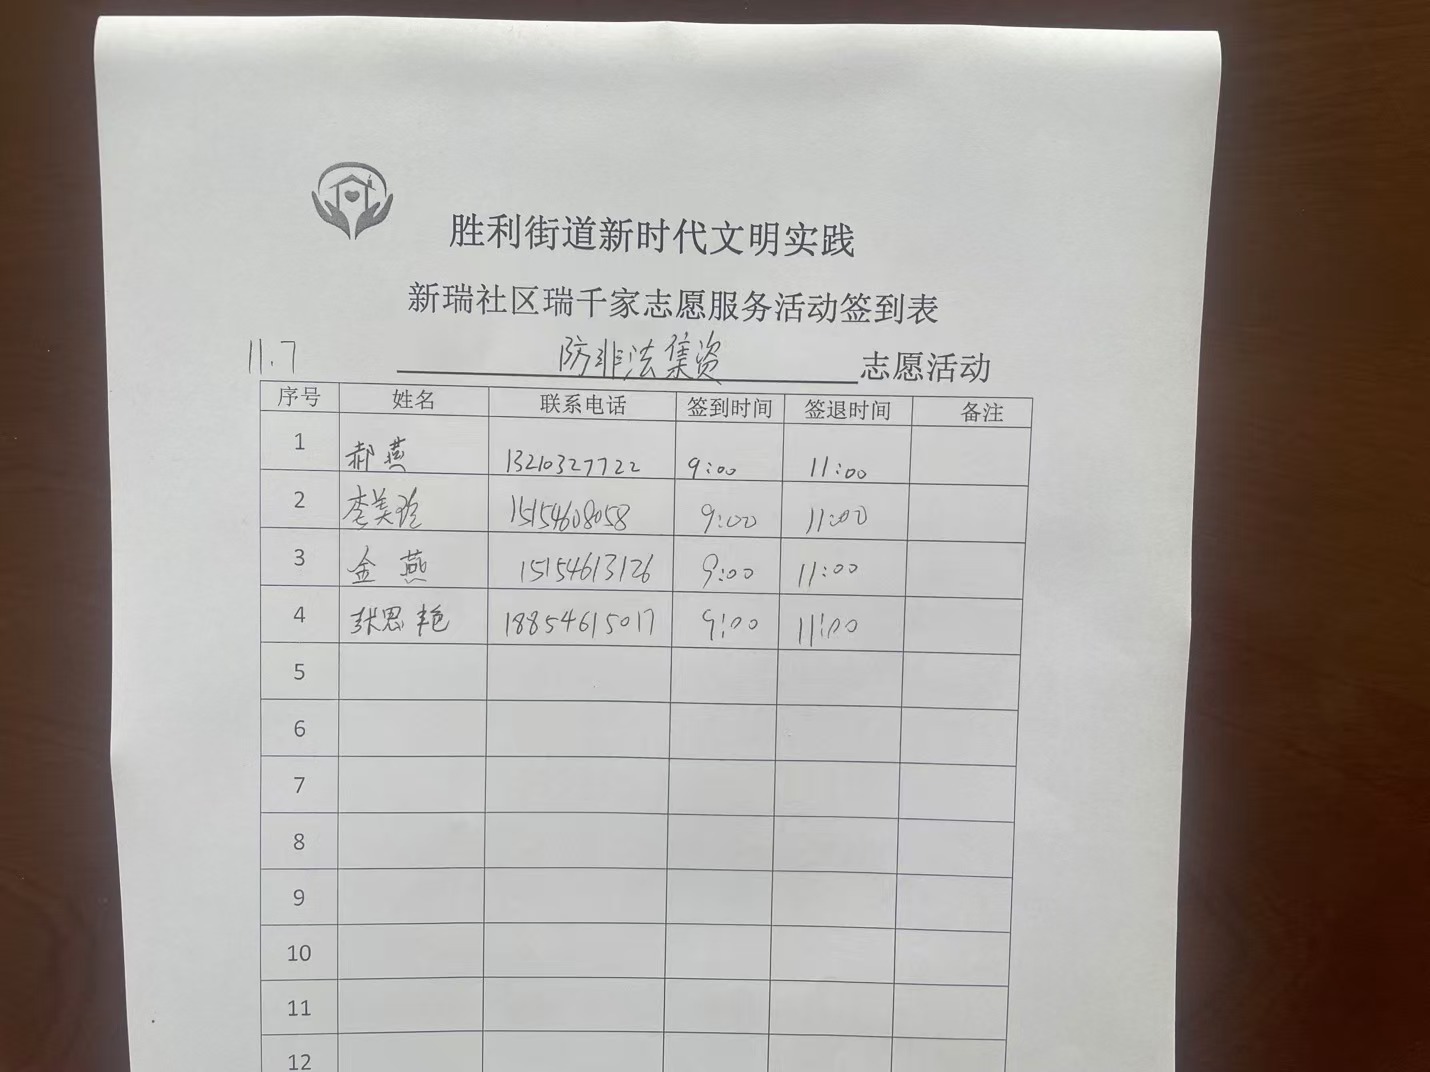 胜利街道新时代文明实践
新瑞社区瑞千家志愿服务活动签到表
11.7 防非法集资 志愿活动
序号 姓名 联系电话 签到时间 签退时间 备注
1 郝燕 13210327722 9:00 11:00
2 李美玲 15154608058 9:00 11:00
3 金燕 15154613126 9:00 11:00
4 张思艳 18854615017 9:00 11:00
5
6
7
8
9
10
11
12